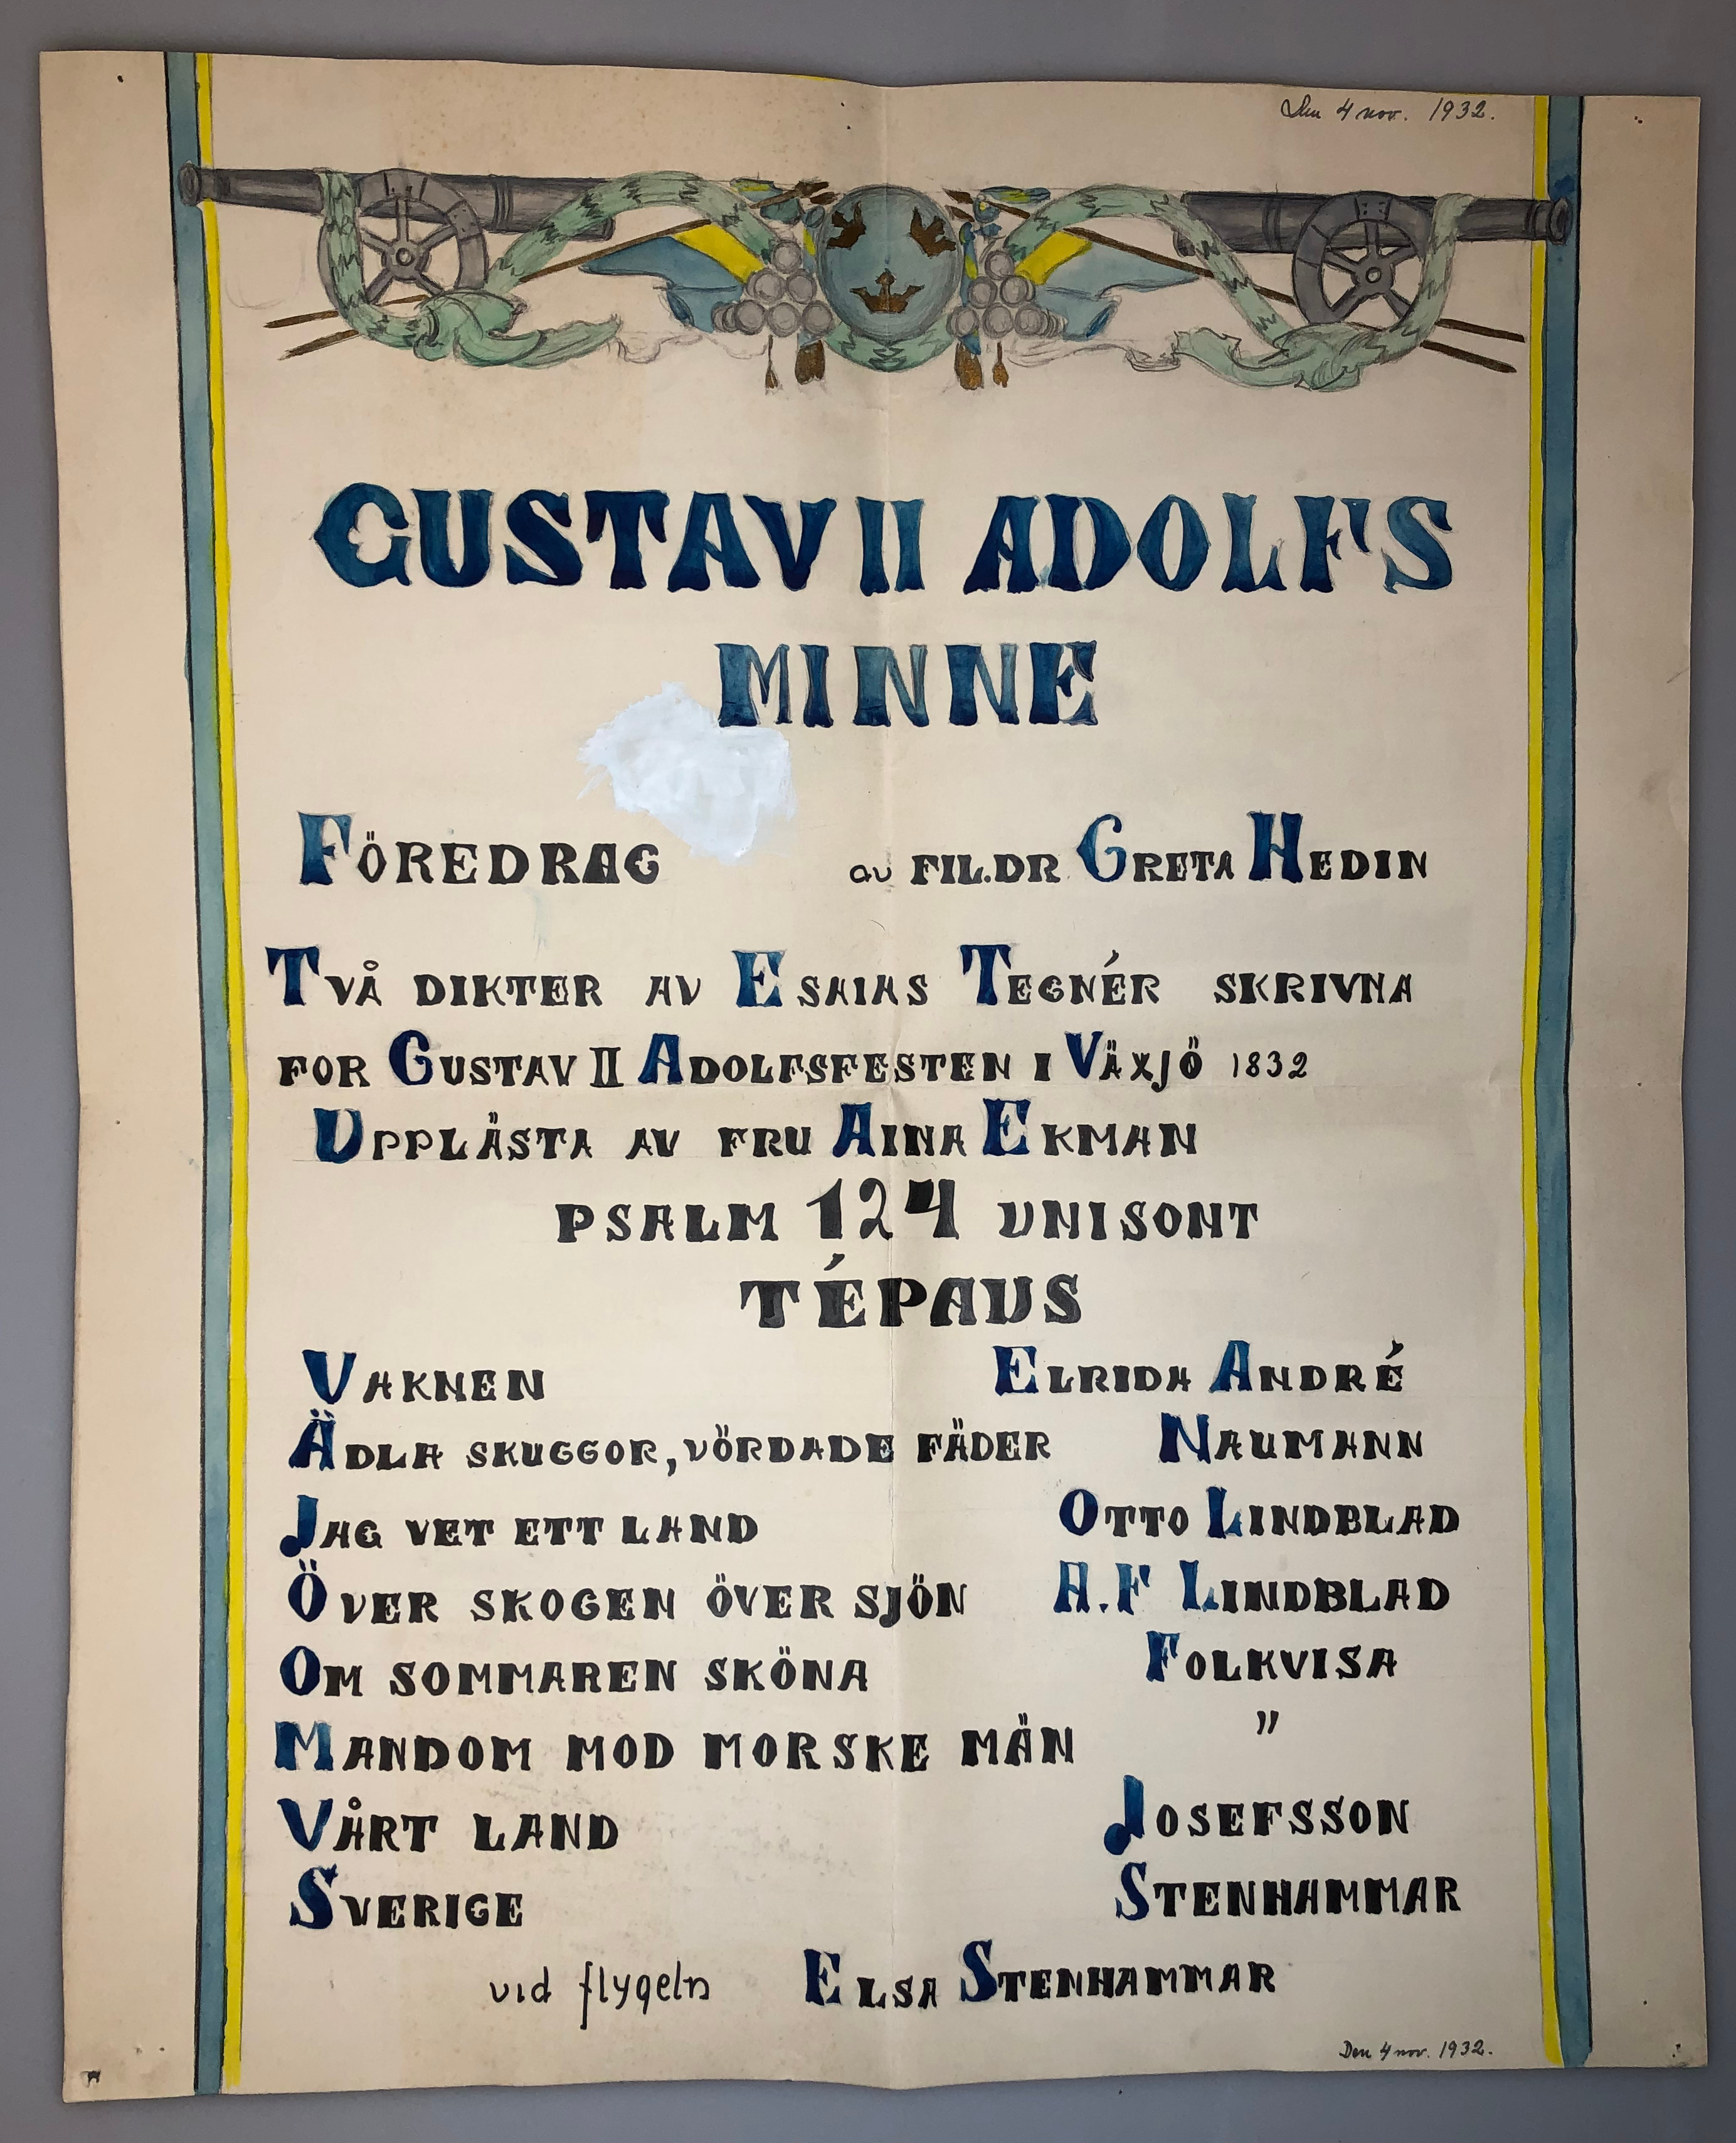 Den 4 nov. 1932.
GUSTAV II ADOLFS
MINNE
FÖREDRAG av FIL.DR GRETA HEDIN
TVÅ DIKTER AV ESAIAS TEGNÉR SKRIVNA
FOR GUSTAV II ADOLFSFESTEN I VÄXJÖ 1832
UPPLÄSTA AV FRU AINA EKMAN
PSALM 124 UNISONT
TÉPAUS
VAKNEN ELRIDA ANDRÉ
ÄDLA SKUGGOR, VÖRDADE FÄDER NAUMANN
JAG VET ETT LAND OTTO LINDBLAD
ÖVER SKOGEN ÖVER SJÖN A.F LINDBLAD
OM SOMMAREN SKÖNA FOLKVISA
MANDOM MOD MORSKE MÄN "
VÅRT LAND JOSEFSSON
SVERIGE STENHAMMAR
vid flygeln ELSA STENHAMMAR
Den 4 nov. 1932.